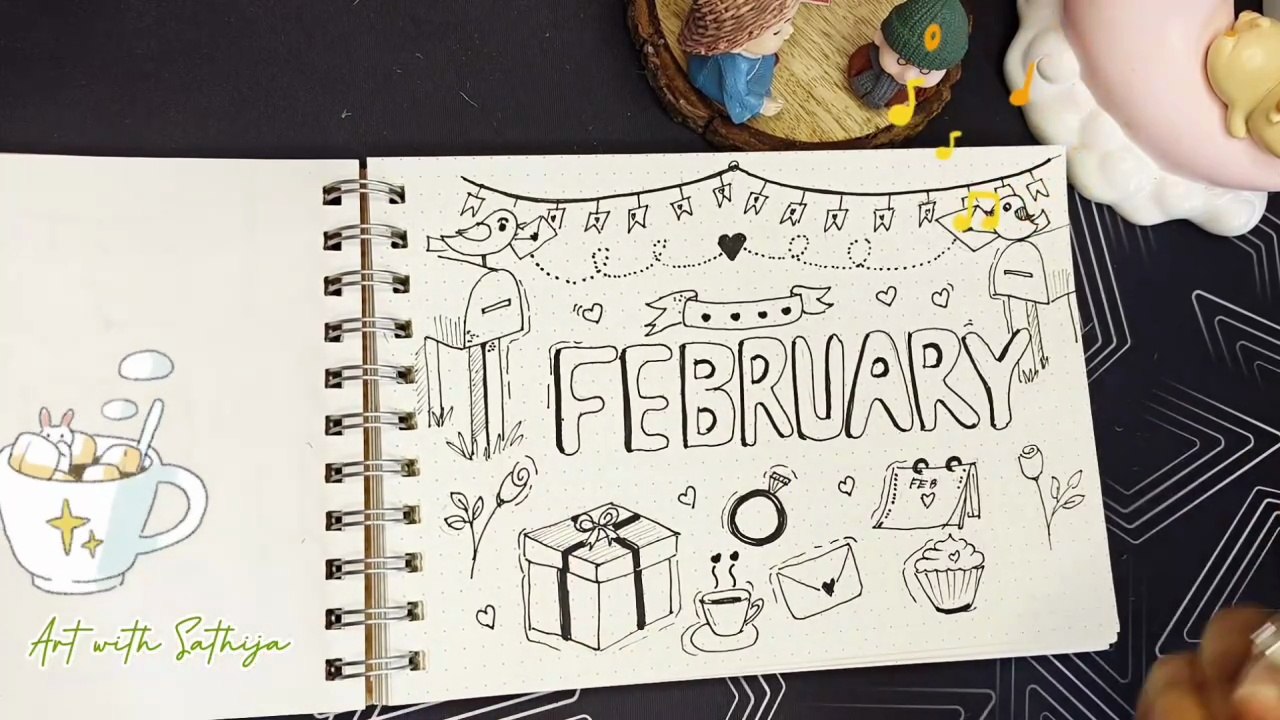 FEBRUARY
FEB
Art with Sathija